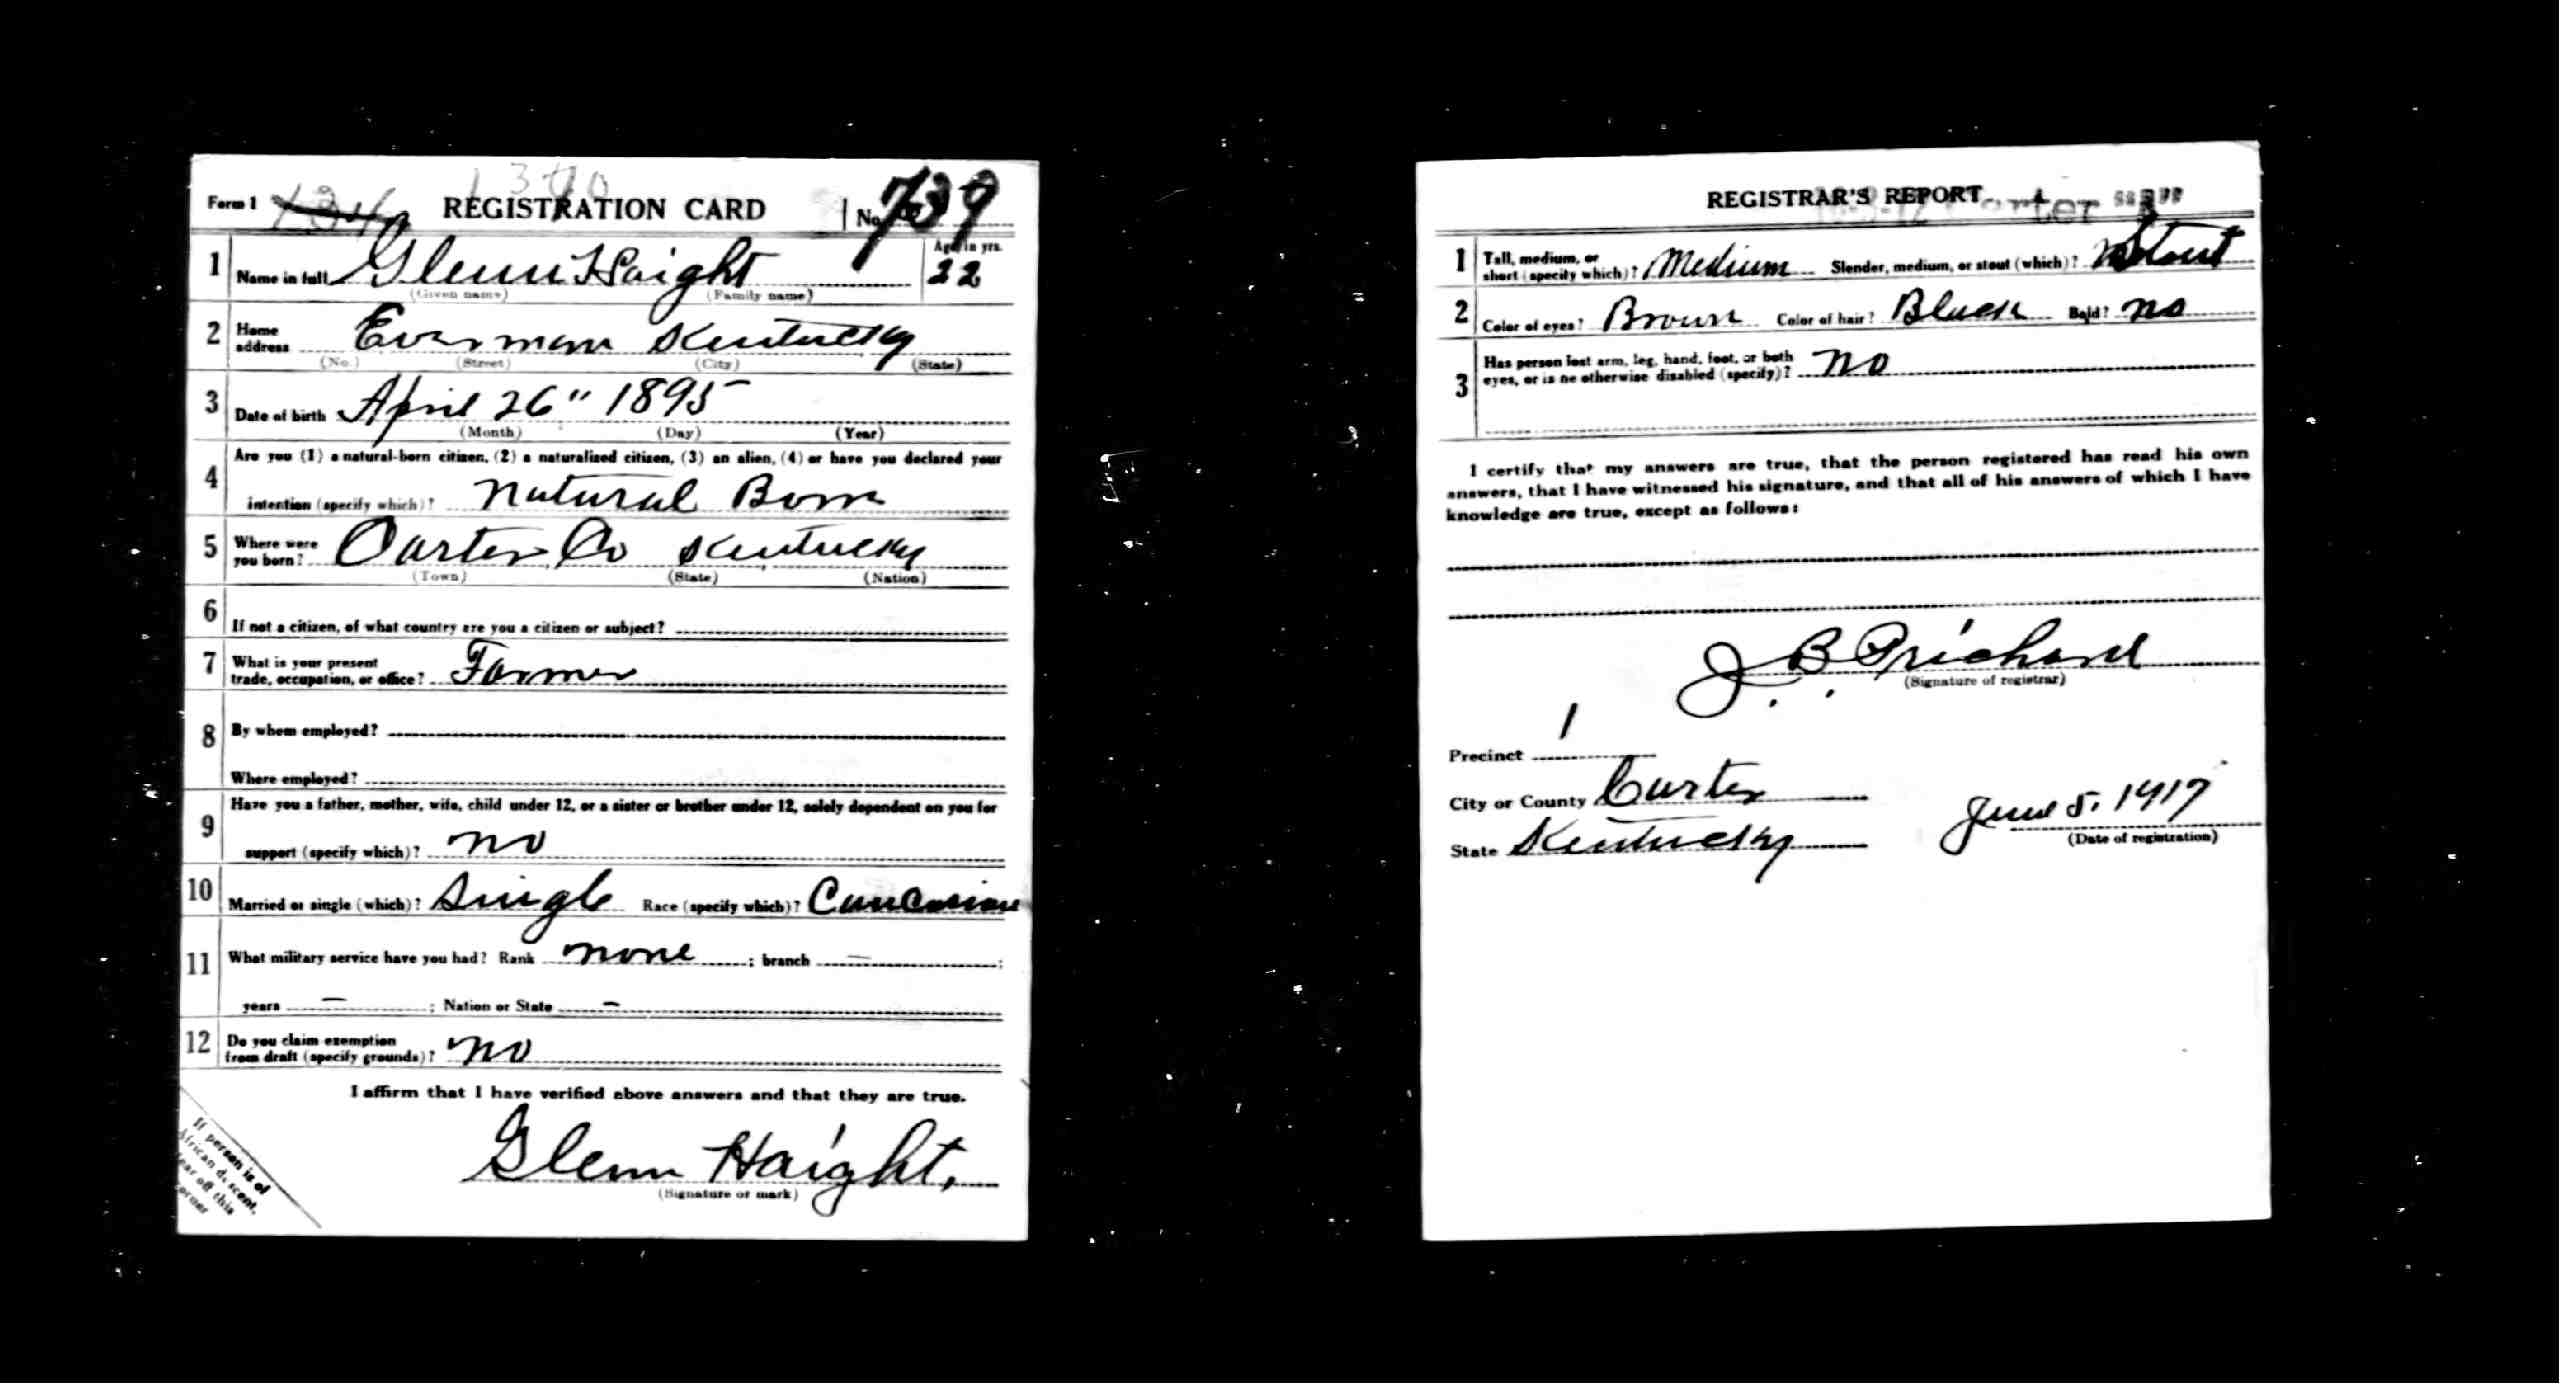 Form 1 REGISTRATION CARD No. 739
1 Name in full Glenn Haight Age, in yrs. 22
(Given name) (Family name)
2 Home address Everman Kentucky
(No.) (Street) (City) (State)
3 Date of birth April 26" 1895
(Month) (Day) (Year)
4 Are you (1) a natural-born citizen, (2) a naturalized citizen, (3) an alien, (4) or have you declared your
intention (specify which)? Natural Born
5 Where were you born? Carter Co Kentucky
(Town) (State) (Nation)
6 If not a citizen, of what country are you a citizen or subject?
7 What is your present
trade, occupation, or office? Farmer
8 By whom employed?
Where employed?
9 Have you a father, mother, wife, child under 12, or a sister or brother under 12, solely dependent on you for
support (specify which)? no
10 Married or single (which)? Single Race (specify which)? Caucasian
11 What military service have you had? Rank none ; branch — ;
years — ; Nation or State —
12 Do you claim exemption
from draft (specify grounds)? no
I affirm that I have verified above answers and that they are true.
Glenn Haight.
(Signature or mark)
If person is of
African descent,
tear off this
corner
REGISTRAR'S REPORT
1 Tall, medium, or
short (specify which)? Medium Slender, medium, or stout (which)? Stout
2 Color of eyes? Brown Color of hair? Black Bald? no
3 Has person lost arm, leg, hand, foot, or both
eyes, or is he otherwise disabled (specify)? no
I certify that my answers are true, that the person registered has read his own
answers, that I have witnessed his signature, and that all of his answers of which I have
knowledge are true, except as follows:
J. B. Prichard
(Signature of registrar)
Precinct 1
City or County Carter
State Kentucky June 5. 1917
(Date of registration)